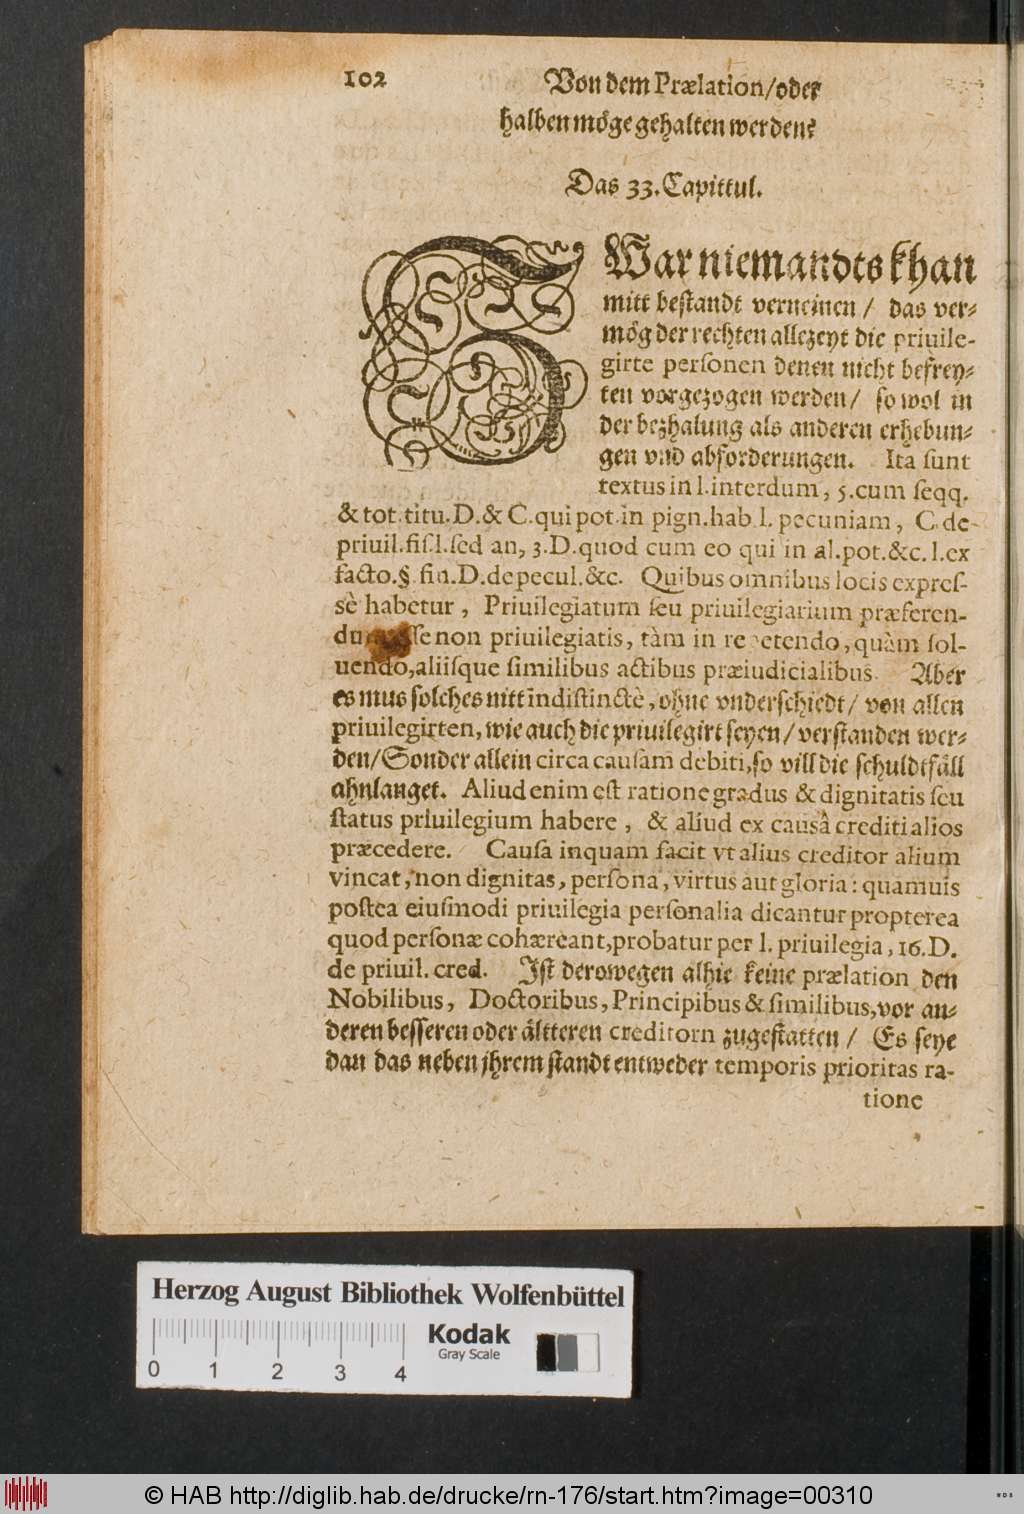 102 Von dem Prælation/oder
halben möge gehalten werden?
Das 33. Capittul.
ZWar niemandts khan
mitt bestandt verneinen / das ver-
mög der rechten allezeyt die priuile-
girte personen denen nicht befrey-
ten vorgezogen werden / so wol in
der bezhalung als anderen erhebun-
gen vnd abforderungen. Ita sunt
textus in l. interdum, 5. cum seqq.
& tot. titu. D. & C. qui pot. in pign. hab. l. pecuniam, C. de
priuil. fis. l. sed an, 3. D. quod cum eo qui in al. pot. &c. l. ex
facto. §. fin. D. de pecul. &c. Quibus omnibus locis expres-
sè habetur, Priuilegiatum seu priuilegiarium præferen-
non priuilegiatis, tàm in repetendo, quàm sol-
uendo, aliisque similibus actibus præiudicialibus. Aber
es mus solches nitt indistinctè, ohne vnderschiedt / von allen
priuilegirten, wie auch die priuilegirt seyen / verstanden wer-
den / Sonder allein circa causam debiti, so vill die schuldtfäll
ahnlanget. Aliud enim est ratione gradus & dignitatis seu
status priuilegium habere, & aliud ex causâ crediti alios
præcedere. Causa inquam facit vt alius creditor alium
vincat, non dignitas, persona, virtus aut gloria: quamuis
postea eiusmodi priuilegia personalia dicantur propterea
quod personæ cohæreant, probatur per l. priuilegia, 16. D.
de priuil. cred. Ist derowegen alhie keine prælation den
Nobilibus, Doctoribus, Principibus & similibus, vor an-
deren besseren oder ältteren creditorn zugestatten / Es seye
dan das neben jhrem standt entweder temporis prioritas ra-
tione
Herzog August Bibliothek Wolfenbüttel
Kodak
Gray Scale
0 1 2 3 4
© HAB http://diglib.hab.de/drucke/rn-176/start.htm?image=00310